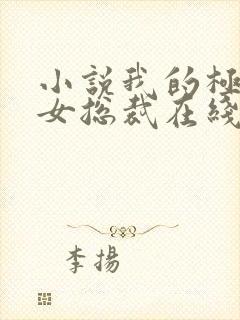 小説我的極
女總裁在綫
李揚